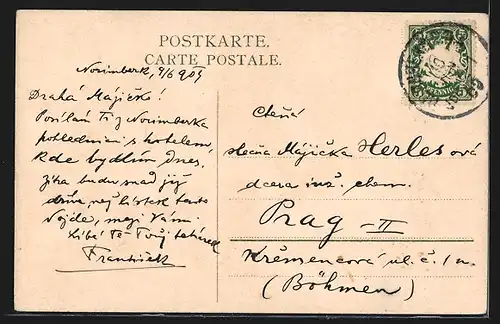 POSTKARTE.
CARTE POSTALE.
Norimberk, 9/6 905
Drahá Májičko!
Posílám Ti z Norimberka
pohlednici s hotelem,
kde bydlím dnes.
Zítra budu snad již
dříve, než lístek tento
dojde, mezi Vámi.
Líbá Tě Tvůj tatínek
František
Ctěná
slečna Májička Herlesová
dcera inž. chem.
Prag – II
Křemencová ul. č. 1 n.
(Böhmen)
5
5
PFENNIG